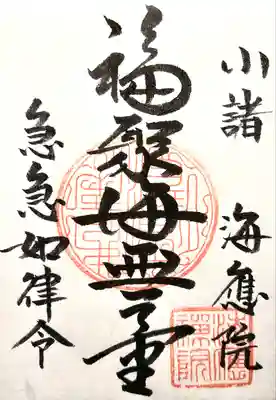 小諸
海應院
福聚海無量
急急如律令